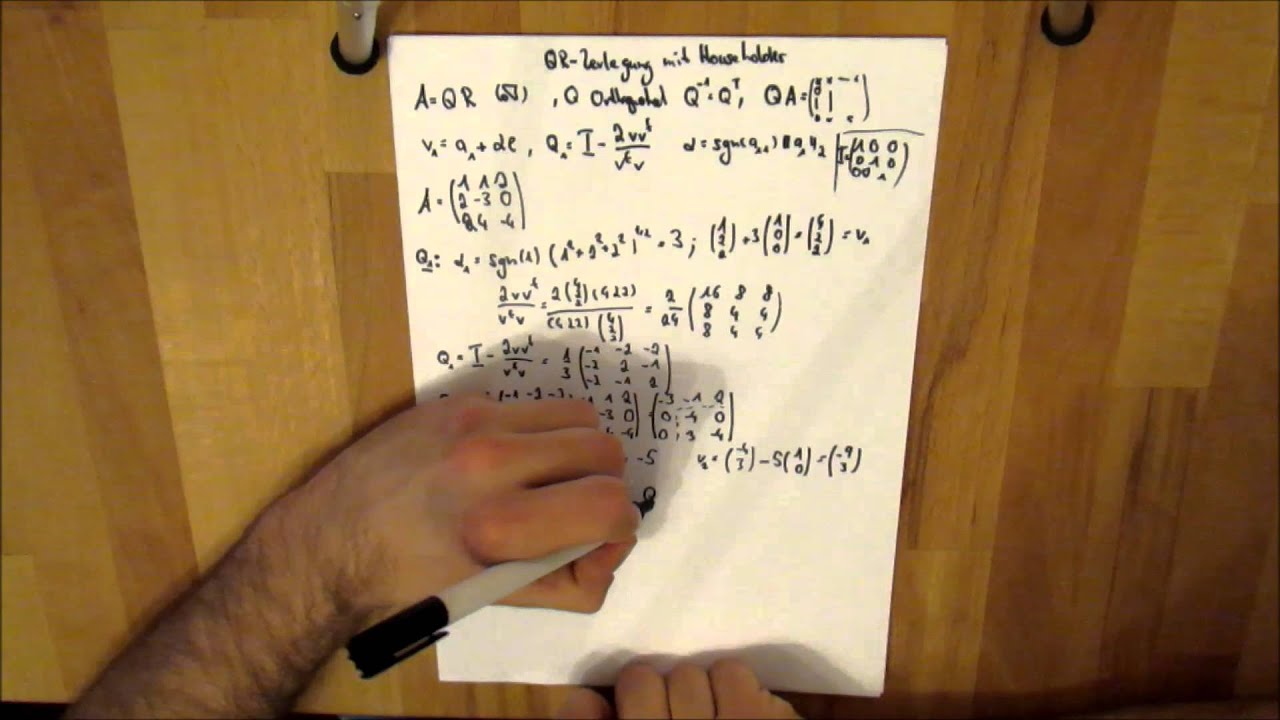 QR-Zerlegung mit Householder
A=QR , Q Orthogonal Q⁻¹=Qᵀ, QA=
v₁ = a₁ + αe , Q₁= I - 2vvᵗ/vᵗv α = sgn(a₁₁) ‖a₁‖₂ I=(1 0 0; 0 1 0; 0 0 1)
A = (1 1 2; 2 -3 0; 2 4 -4)
Q₁: α₁ = sgn(1) (1²+2²+2²)^1/2 = 3 ; (1; 2; 2) + 3 (1; 0; 0) = (4; 2; 2) = v₁
2vvᵗ/vᵗv = 2 (4; 2; 2) (4 2 2) / (4 2 2) (4; 2; 2) = 2/24 (16 8 8; 8 4 4; 8 4 4)
Q₁ = I - 2vvᵗ/vᵗv = 1/3 (-1 -2 -2; -2 2 -1; -2 -1 2)
(-1 -2 -2 1 1 2; -3 0; 4 -4) = (-3 -1 2; 0 -4 0; 0 3 -4)
= -5 v₂ = (-4; 3) - 5 (1; 0) = (-9; 3)